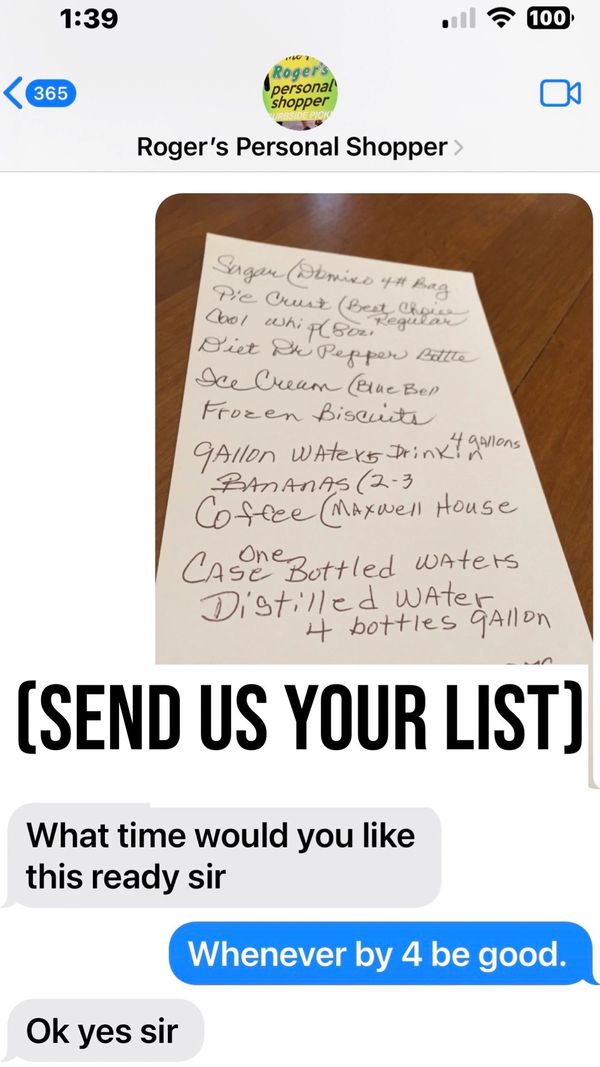 1:39
100
365
Roger's
personal
shopper
CURBSIDE PICK
Roger's Personal Shopper
Sugar (Domino 4# Bag
Pie Crust (Best Choice
Regular
Cool whip (8oz.
Diet Dr Pepper Bottle
Ice Cream (Blue Bell
Frozen Biscuits
4 gallons
gAllon WAters Drinkin
BANANAS (2-3
Coffee (MAxwell House
One
CASe Bottled wAters
Distilled wAter
4 bottles gAllon
(SEND US YOUR LIST)
What time would you like
this ready sir
Whenever by 4 be good.
Ok yes sir